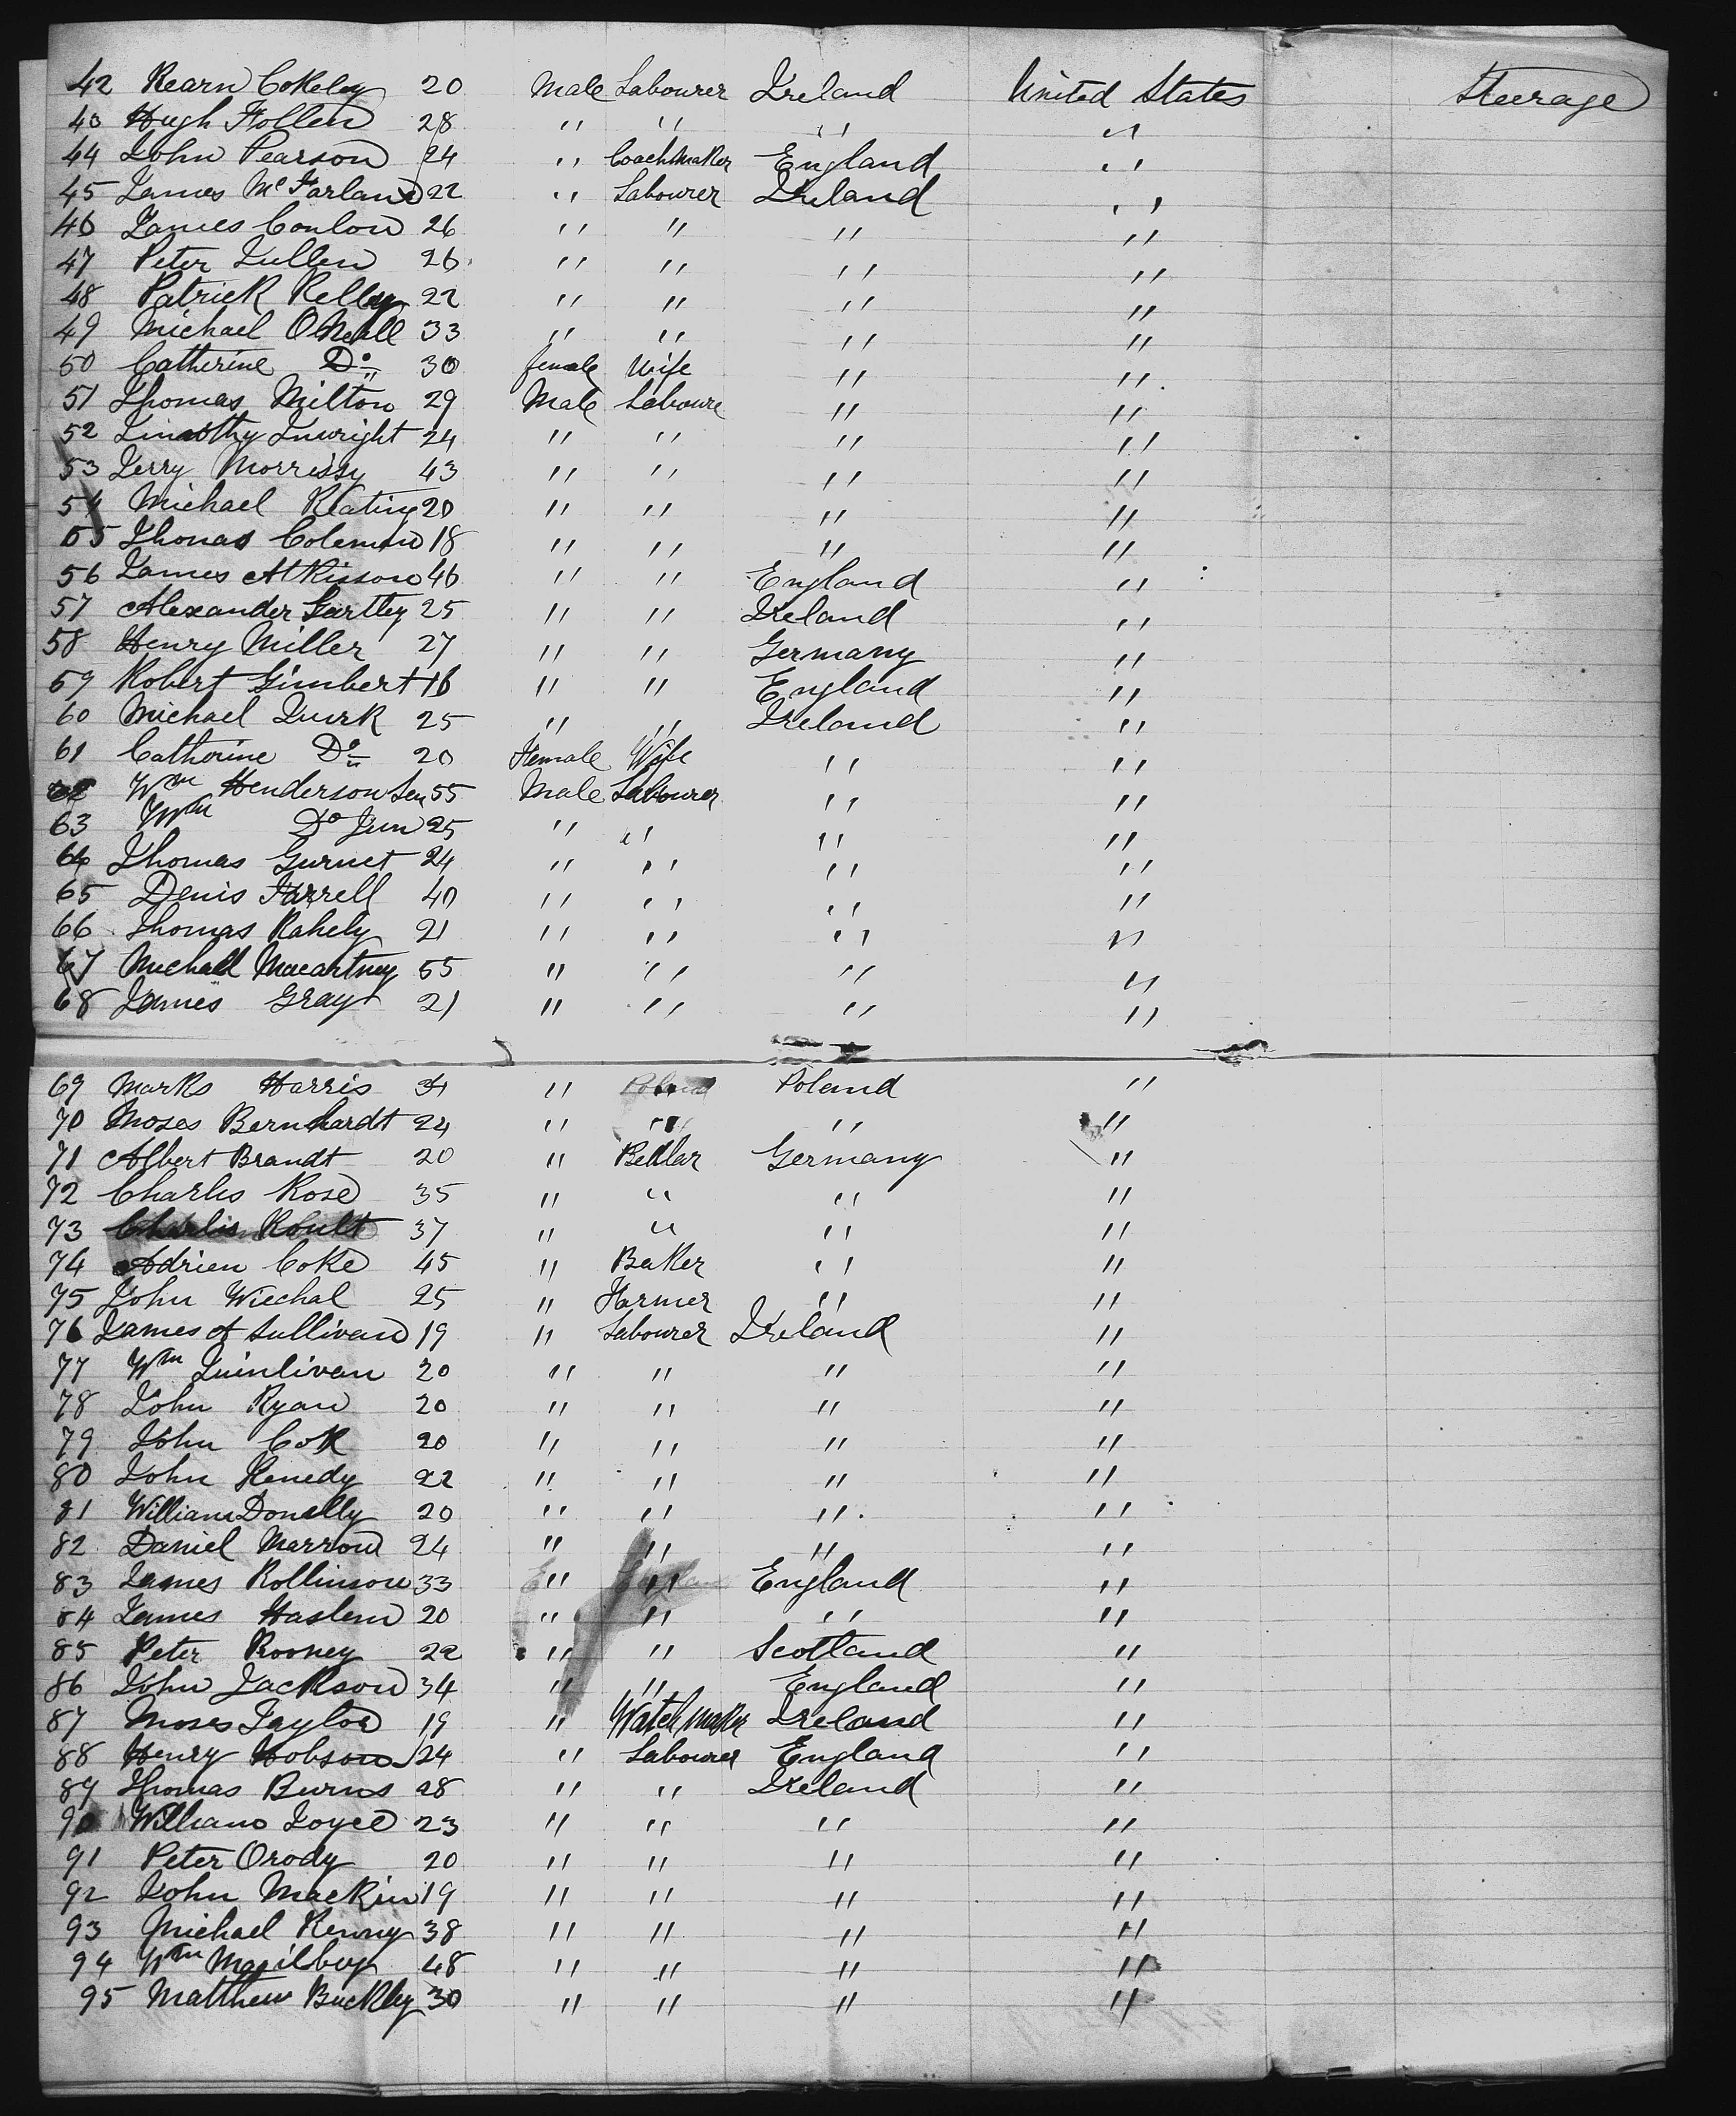 42 Kearn Cokeley 20 Male Labourer Ireland United States Steerage
43 Hugh Follen 28 " " " "
44 John Pearson 24 " Coachmaker England "
45 James McFarland 22 " Labourer Ireland "
46 James Conlon 26 " " " "
47 Peter Cullen 26 " " " "
48 Patrick Kelley 22 " " " "
49 Michael ONeill 33 " " " "
50 Catherine Do 30 female Wife " "
51 Thomas Milton 29 Male Laboure " "
52 Timothy Inwright 24 " " " "
53 Jerry Morrissy 43 " " " "
54 Michael Keating 20 " " " "
55 Thomas Coleman 18 " " " "
56 James Atkisson 46 " " England "
57 Alexander Gartley 25 " " Ireland "
58 Henry Miller 27 " " Germany "
59 Robert Gimbert 16 " " England "
60 Michael Quirk 25 " " Ireland "
61 Catherine Do 20 Female Wife " "
62 Wm Henderson Sen 55 Male Labourer " "
63 Wm Do Jun 25 " " " "
64 Thomas Gurnet 24 " " " "
65 Denis Farrell 40 " " " "
66 Thomas Kahely 21 " " " "
67 Michall Macartney 55 " " " "
68 James Gray 21 " " " "
69 Marks Harris 34 " Poland "
70 Moses Bernhardt 24 " " " "
71 Albert Brandt 20 " Pedlar Germany "
72 Charles Rose 35 " " " "
73 Charlis Koult 37 " " " "
74 Adrien Coke 45 " Baker " "
75 John Wiechal 25 " Farmer " "
76 James A Sullivan 19 " Labourer Ireland "
77 Wm Quinlivan 20 " " " "
78 John Ryan 20 " " " "
79 John Cok 20 " " " "
80 John Kenedy 22 " " " "
81 William Donelly 20 " " " "
82 Daniel Marrow 24 " " " "
83 James Rollinson 33 " " England "
84 James Haslem 20 " " " "
85 Peter Rooney 22 " " Scotland "
86 John Jackson 34 " " England "
87 Moses Taylor 19 " Watchmaker Ireland "
88 Henry Hobson 24 " Labourer England "
89 Thomas Burns 28 " " Ireland "
90 William Joyce 23 " " " "
91 Peter Orody 20 " " " "
92 John Mackin 19 " " " "
93 Michael Kenny 38 " " " "
94 Wm Magilbuy 48 " " " "
95 Matthew Buckley 30 " " " "